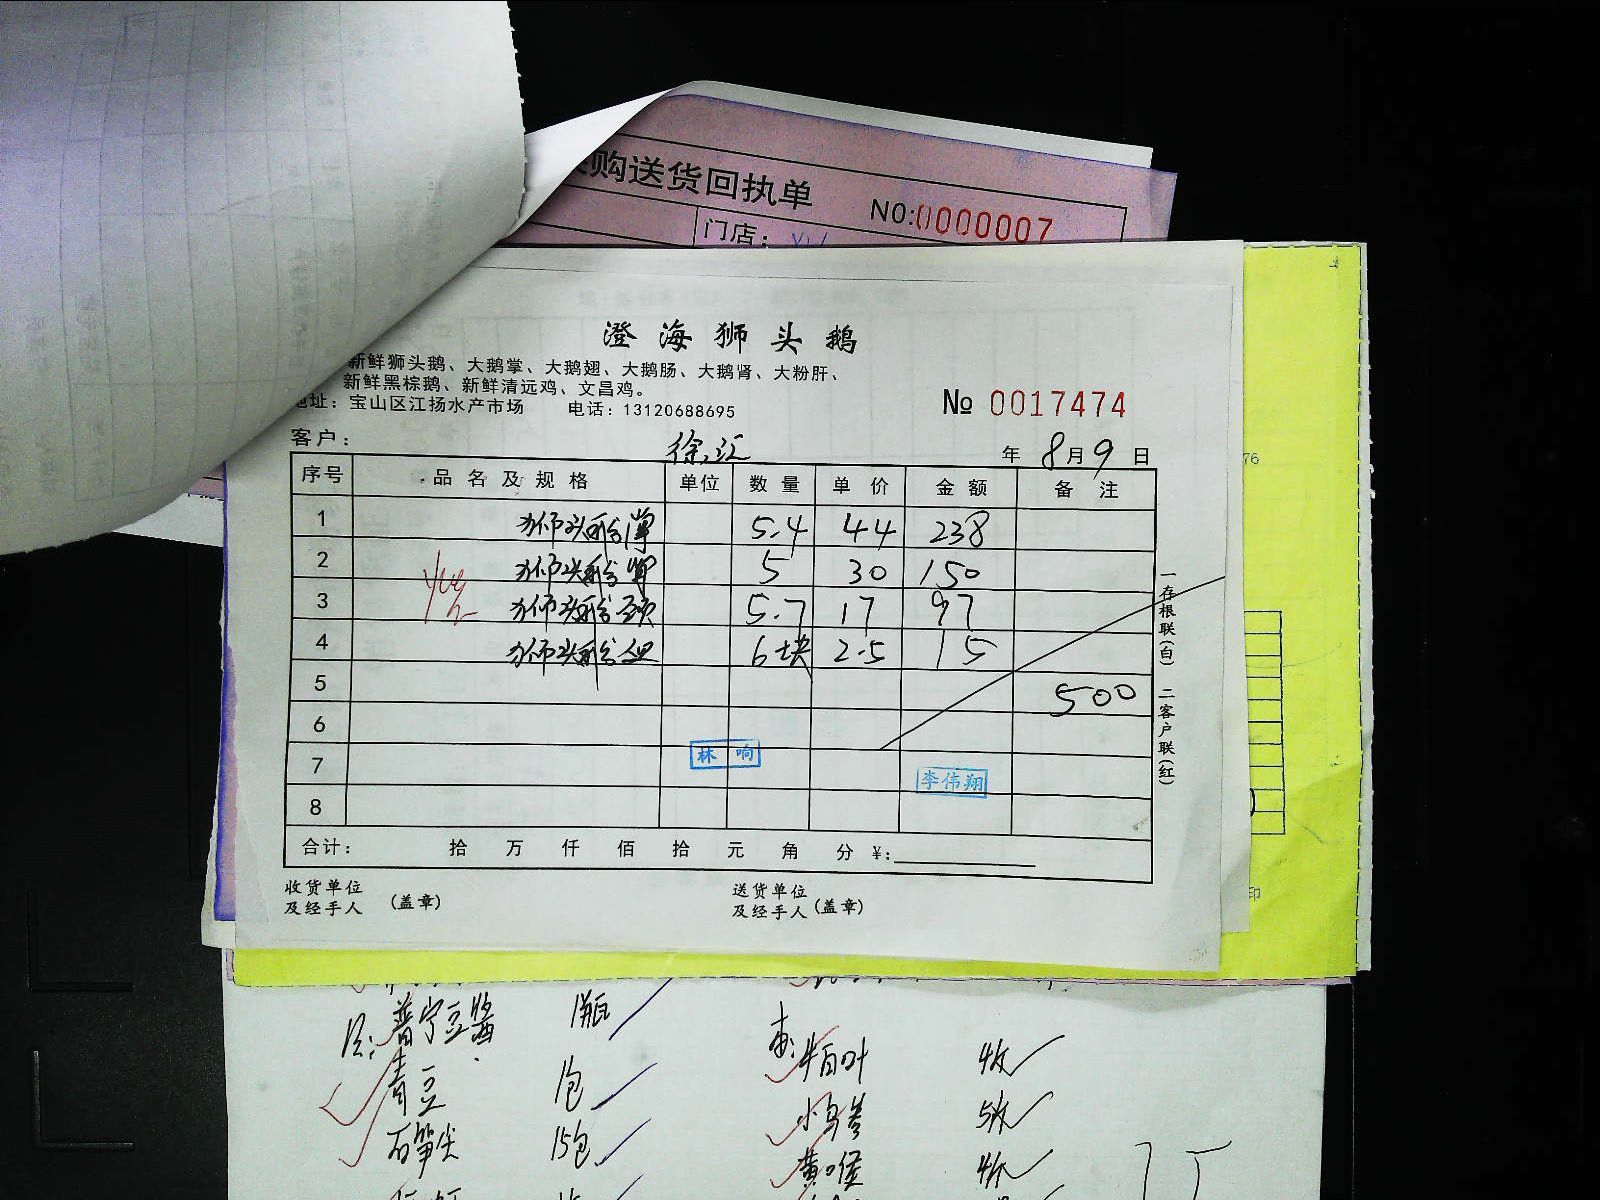 购送货回执单 NO:0000007
门店：
澄海狮头鹅
新鲜狮头鹅、大鹅掌、大鹅翅、大鹅肠、大鹅肾、大粉肝、
新鲜黑棕鹅、新鲜清远鸡、文昌鸡。
地址：宝山区江扬水产市场 电话：13120688695
№ 0017474
客户： 徐汇 年 8月9日
序号 品名及规格 单位 数量 单价 金额 备注
1 狮头 5.4 44 238
2 狮头 5 30 150
3 狮头 颈 5.7 17 97
4 狮头 6块 2.5 15
5 500
6
7 林响 李伟翔
8
合计： 拾 万 仟 佰 拾 元 角 分 ¥:
收货单位 送货单位
及经手人 (盖章) 及经手人 (盖章)
一存根联(白) 二客户联(红)
76
印
普宁豆酱 1瓶
青豆 1包
石笋尖 15包
牛百叶
小乌参
黄喉